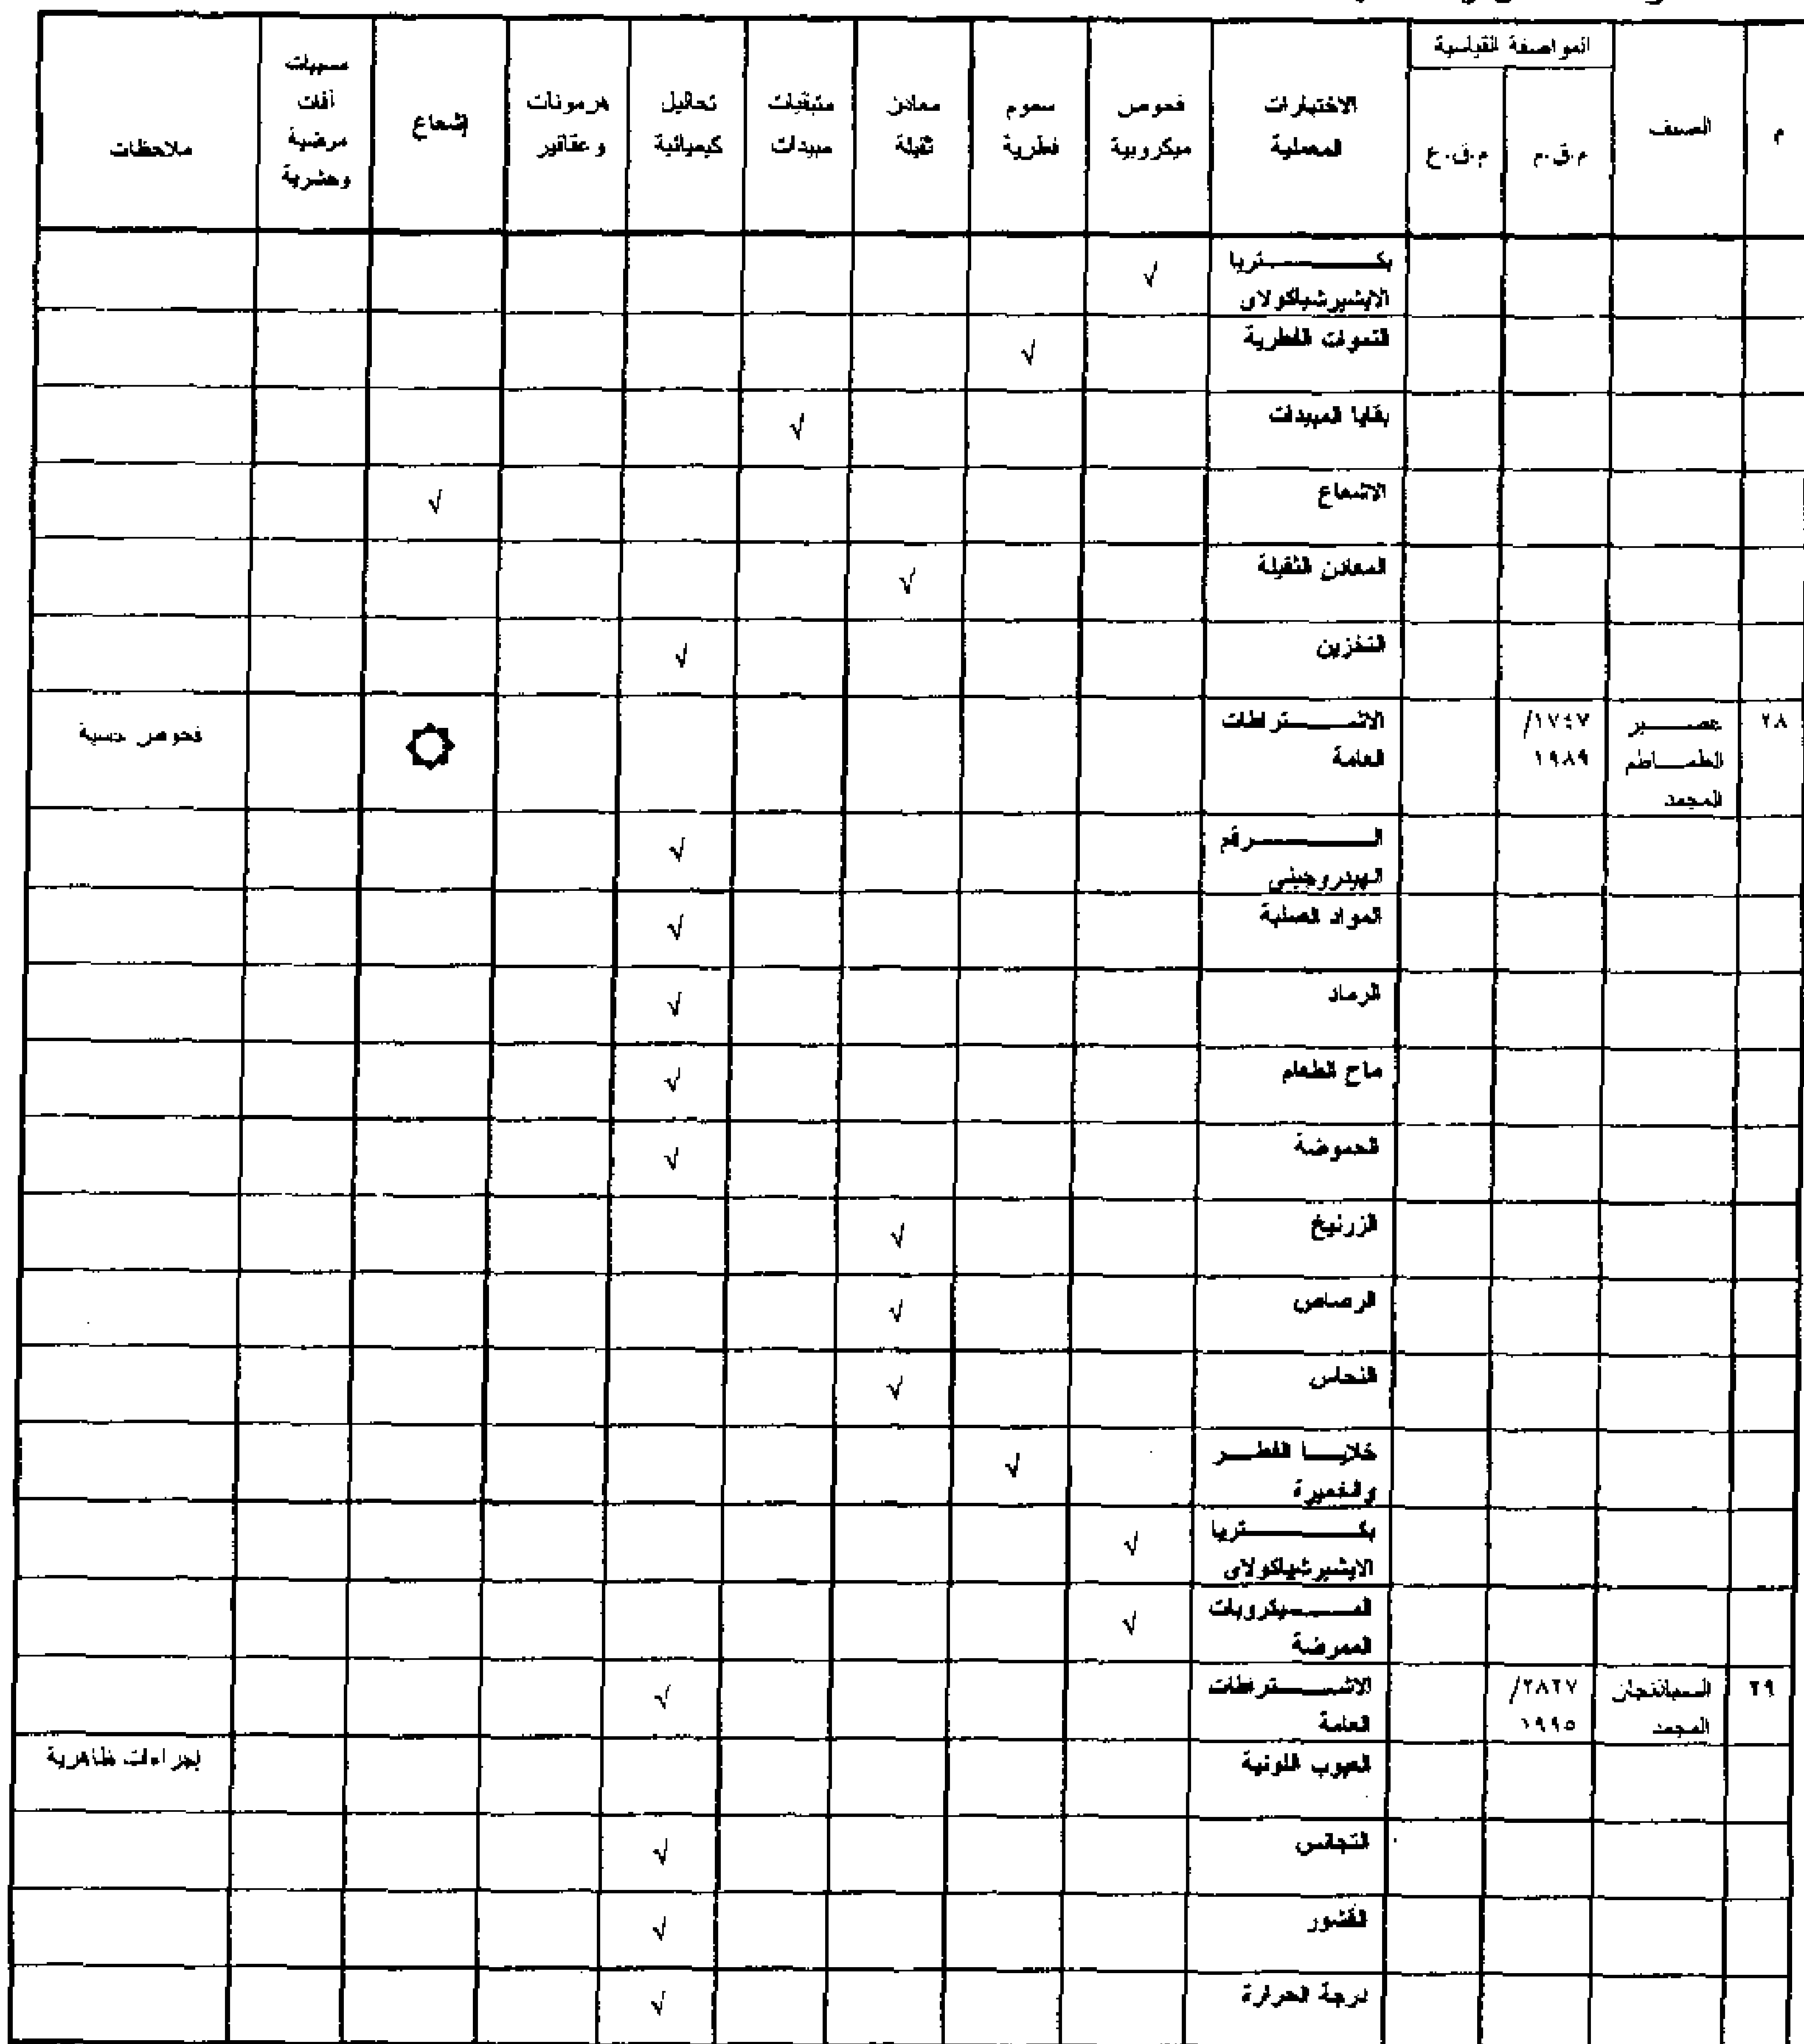 م الصنف المواصفة القياسية الاختبارات المعملية فحوص ميكروبية سموم فطرية معادن ثقيلة متبقيات مبيدات تحاليل كيميائية هرمونات وعقاقير إشعاع مسببات آفات مرضية وحشرية ملاحظات
م.ق.م م.ق.ع
بكتريا الايشيرشياكولاى √
النموات الفطرية √
بقايا المبيدات √
الاشعاع √
المعادن الثقيلة √
التخزين √
٢٨ عصير الطماطم المجمد ١٧٤٧/ ١٩٨٩ الاشتراطات العامة فحوص حسية
الرقم الهيدروجينى √
المواد الصلبة √
الرماد √
ملح الطعام √
الحموضة √
الزرنيخ √
الرصاص √
النحاس √
خلايا الفطر والخميرة √
بكتريا الايشيرشياكولاى √
الميكروبات الممرضة √
٢٩ الباذنجان المجمد ٢٨٢٧/ ١٩٩٥ الاشتراطات العامة √
العيوب اللونية إجراءات ظاهرية
التجانس √
القشور √
درجة الحرارة √